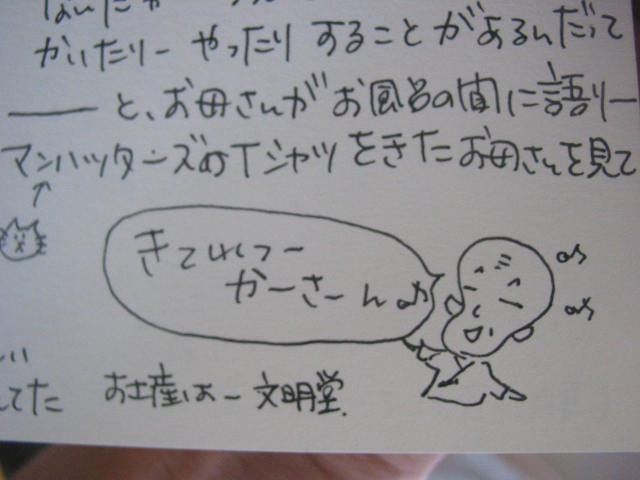 かいたりー やったり することが あるんだって
── と、お母さんが お風呂の間に語りー
マンハッターズのTシャツ をきた お母さんを見て
きていれつー
かーさーん♪
してた お土産はー 文明堂.